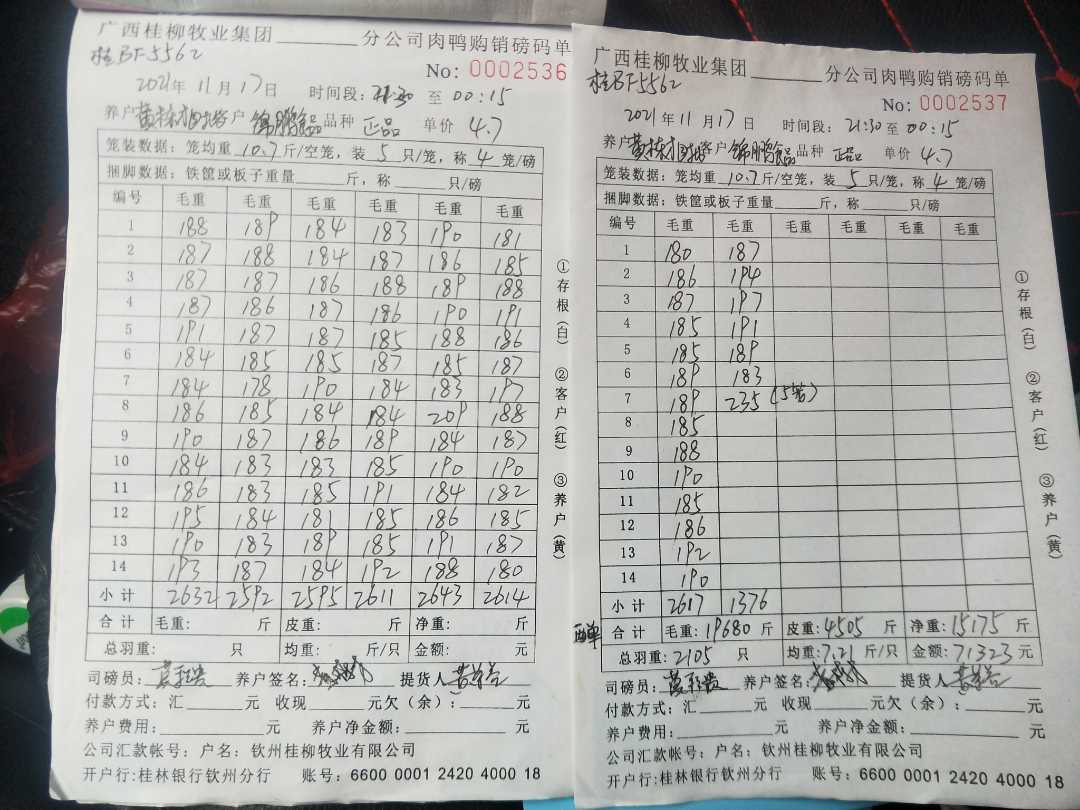 广西桂柳牧业集团______分公司肉鸭购销磅码单
桂BF-5562
No: 0002536
2021年11月17日 时间段: 21:30 至 00:15
养户 客户 锦鹏食品 品种 正品 单价 4.7
笼装数据: 笼均重 10.7 斤/空笼, 装 5 只/笼, 称 4 笼/磅
捆脚数据: 铁筐或板子重量______斤, 称______只/磅
编号 毛重 毛重 毛重 毛重 毛重 毛重
1 188 189 184 183 190 181
2 187 188 184 187 186 185
3 187 187 186 188 189 188
4 187 186 187 186 190 191
5 191 187 187 185 188 186
6 184 185 185 187 185 187
7 184 178 190 184 183 197
8 186 185 184 184 209 188
9 190 187 186 189 184 187
10 184 183 183 185 190 190
11 186 183 185 191 184 182
12 195 184 181 185 186 185
13 190 183 189 185 191 187
14 193 187 184 192 188 180
小计 2632 2592 2595 2611 2643 2614
合计 毛重: 斤 皮重: 斤 净重: 斤
总羽重: 只 均重: 斤/只 金额: 元
司磅员: 养户签名: 提货人
付款方式: 汇______元 收现______元欠(余): ______元
养户费用: ______元 养户净金额: ______元
公司汇款帐号: 户名: 钦州桂柳牧业有限公司
开户行:桂林银行钦州分行 账号: 6600 0001 2420 4000 18
①存根(白) ②客户(红) ③养户(黄)
广西桂柳牧业集团______分公司肉鸭购销磅码单
桂BF-5562
No: 0002537
2021年11月17日 时间段: 21:30至00:15
养户 客户 锦鹏食品 品种 正品 单价 4.7
笼装数据: 笼均重 10.7 斤/空笼, 装 5 只/笼, 称 4 笼/磅
捆脚数据: 铁筐或板子重量______斤, 称______只/磅
编号 毛重 毛重 毛重 毛重 毛重 毛重
1 180 187
2 186 194
3 187 197
4 185 191
5 185 189
6 189 183
7 189 235 (5笼)
8 185
9 188
10 190
11 185
12 186
13 192
14 190
小计 2617 1376
合计 毛重: 19680 斤 皮重: 4505 斤 净重: 15175 斤
总羽重: 2105 只 均重: 7.21 斤/只 金额: 71323 元
司磅员: 养户签名: 提货人
付款方式: 汇______元 收现______元欠(余): ______元
养户费用: ______元 养户净金额: ______元
公司汇款帐号: 户名: 钦州桂柳牧业有限公司
开户行:桂林银行钦州分行 账号: 6600 0001 2420 4000 18
①存根(白) ②客户(红) ③养户(黄)